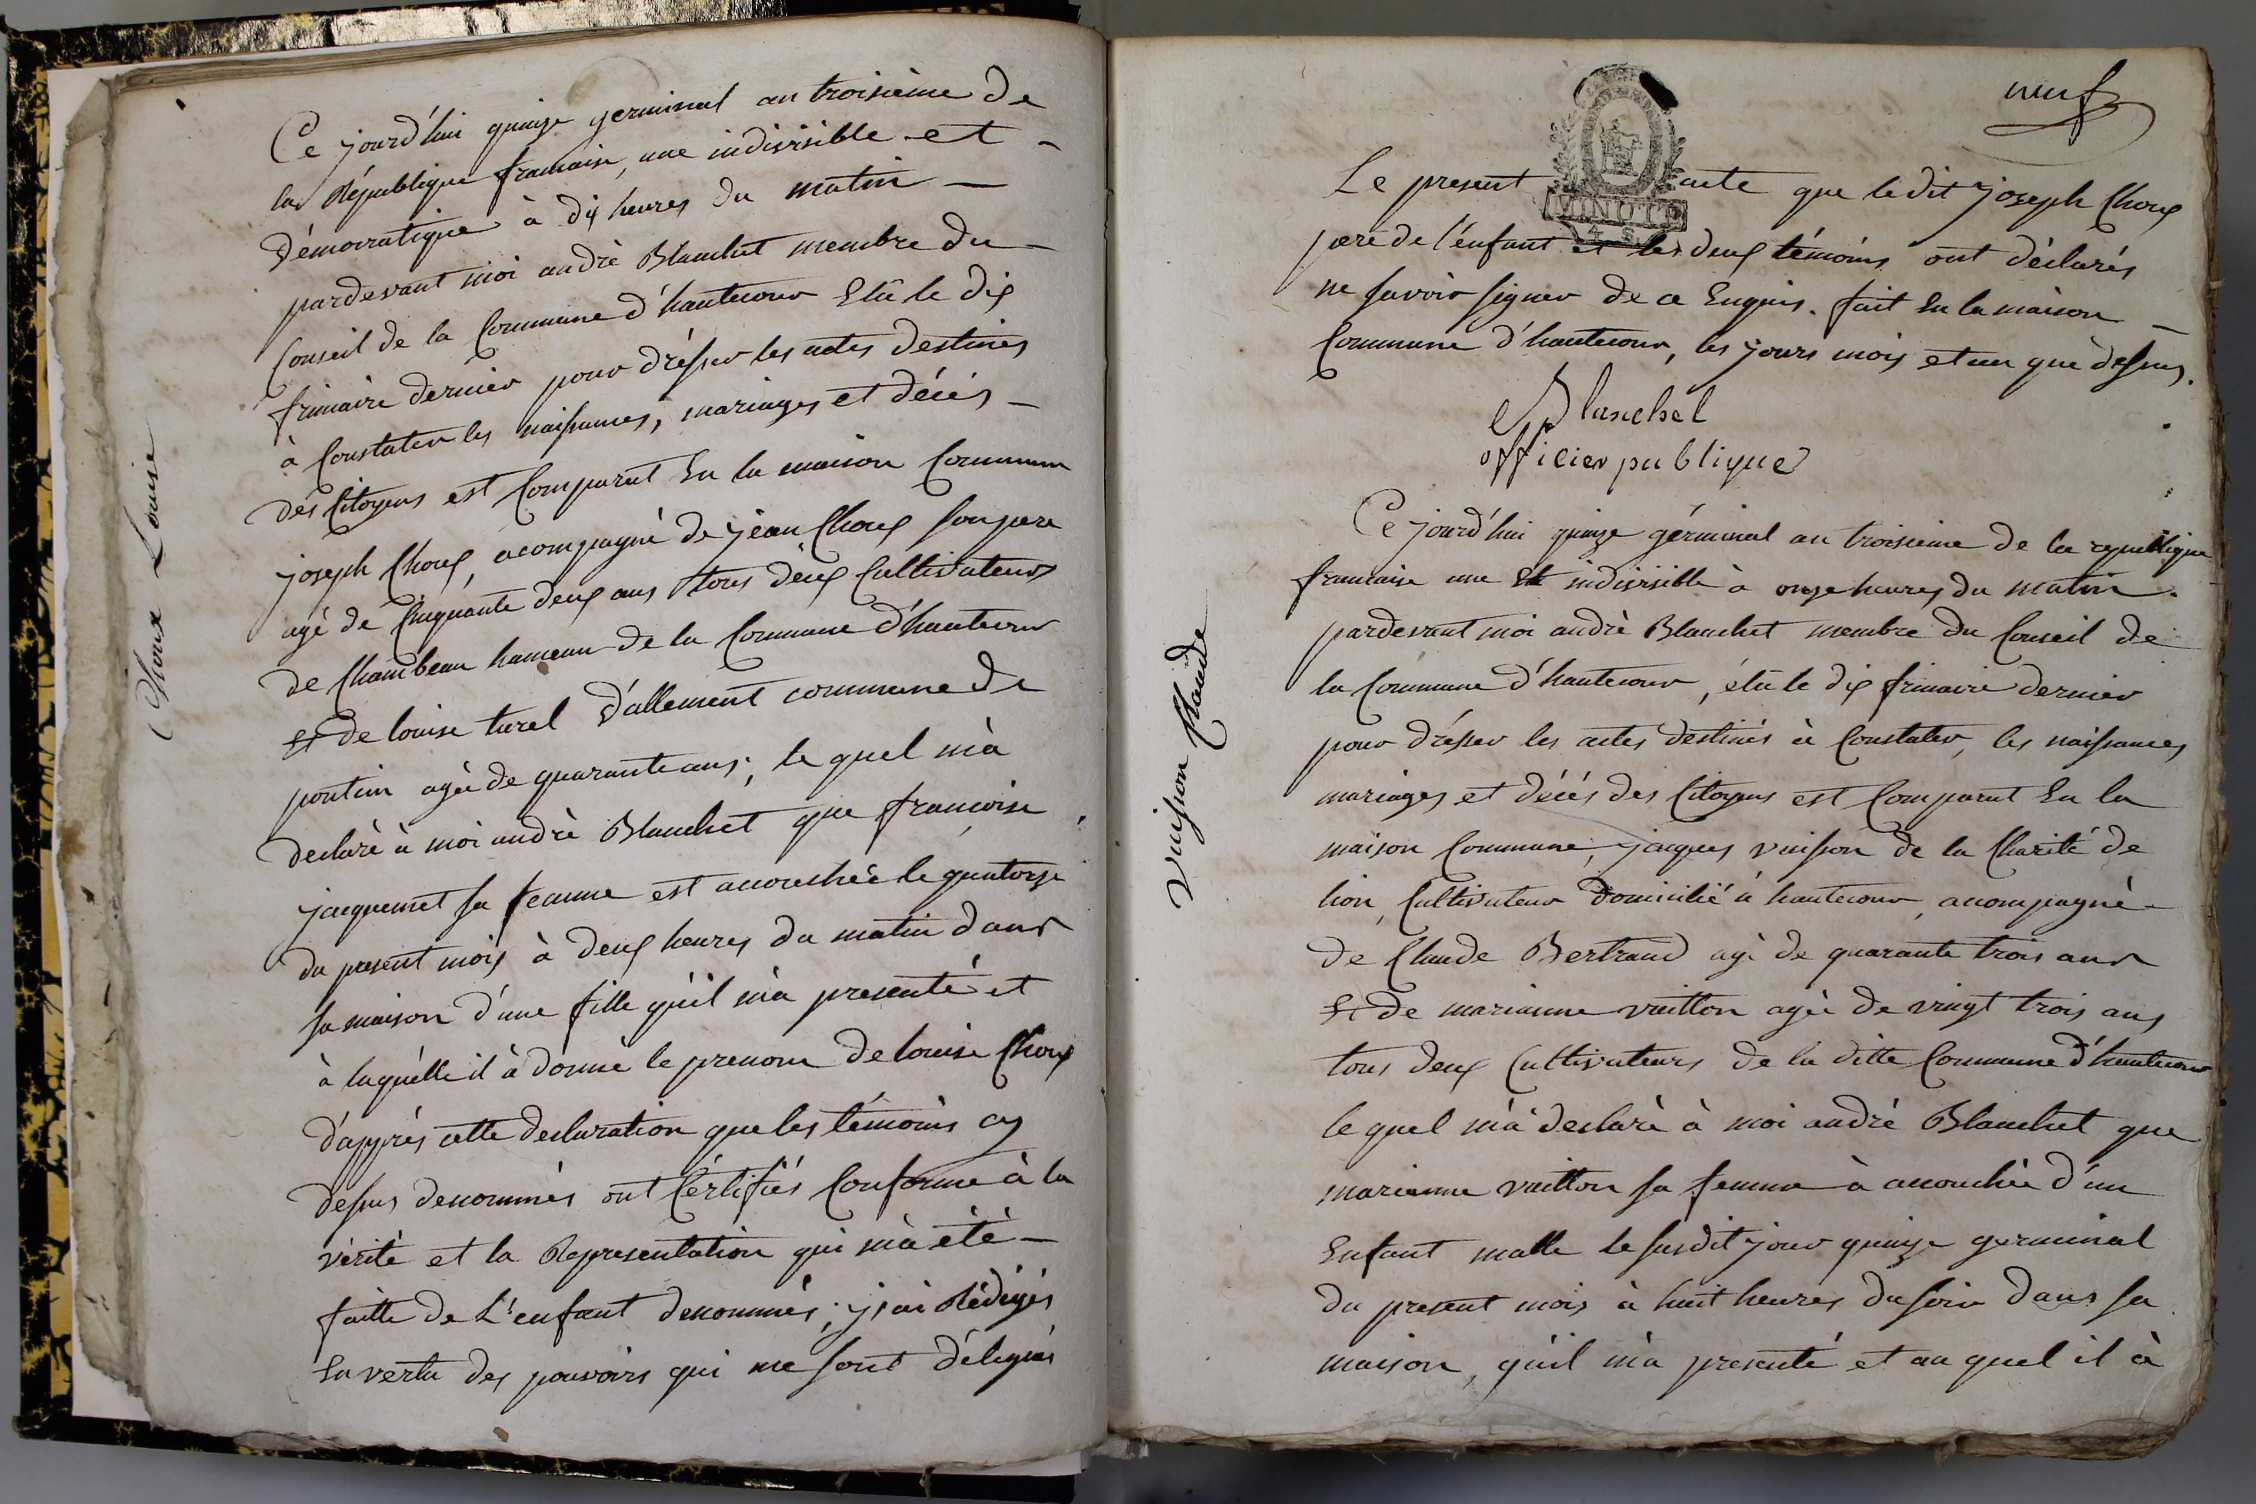 Choux Louise
Ce jourd'hui quinze germinal an troisième de
la République francaise, une indivisible et -
démocratique à dix heures du matin -
pardevant moi andrè Blanchet membre du -
Conseil de la Commune d'hautecour Elû le dix
frimaire dernier pour drésser les actes destinés
à Constater les naissances, mariages et décés -
dés Citoyens est Comparut En la maison Commune
joseph Choux, acompagné de jean Choux son pere
agé de Cinquante deux ans tous deux Cultivateurs
de Chambeau hameau de la Commune d'hautecour
Et de louise turel d'allement commune de
poncin agèe de quarante ans; le quel m'à
declarè à moi andrè Blanchet que francoise
jacquemet sa femme est accouchée le quatorze
du present mois à deux heures du matin dans
sa maison d'une fille qu'il m'a presenté et
à laquélle il à donnè le prenom de louise Choux
d'apprés cette declaration que les témoins cy
dessus denommés ont Cértifiés Conforme à la
vérité et la Representation qui m'à été -
faitte de L'enfant denommés; j'ai Rédigés
En vertu des pouvoirs qui me sont délegués
neuf
MINUTE
4 S.
Le present acte que le dit joseph Choux
pere de l'énfant et les deux témoins ont déclarés
ne savoir signer de ce Enquis. fait En la maison -
Commune d'hautecour, les jours mois et an que dessus.
Blanchet
officier publique
Vuisson Claude
Ce jourd'hui quinze gérminal an troisieme de la republique
francaise une Et indivisible à onze heures du matin.
pardevant moi andrè Blanchet membre du Conseil de
la Commune d'hautecour, élû le dix frimaire dernier
pour drésser les actes destinés à Constater, les naissances
mariages et décés des Citoyens est Comparut En la
maison Commune, jacques vuisson de la Charité de
lion, Cultivateur domicilié à hautecour, acompagné -
de Claude Bertrand agé de quarante trois ans
Et de marianne vuitton agèe de vingt trois ans
tous deux Cultivateurs de la ditte Commune d'hautecour
le quel m'à declarè à moi andrè Blanchet que
marianne vuitton sa femme à accouchée d'un
Enfant malle le susdit jour quinze germinal
du present mois à huit heures du soir dans sa
maison, qu'il m'a presenté et au quel il à